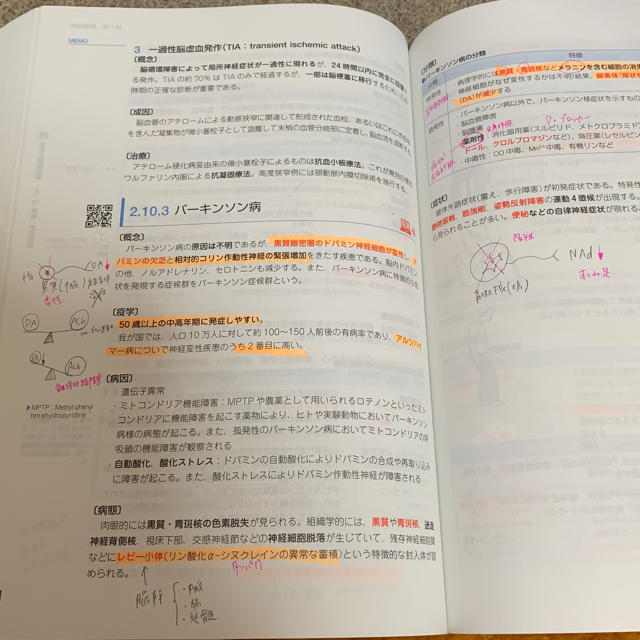 MEMO
3 一過性脳虚血発作（TIA：transient ischemic attack）
〔概念〕
脳循環障害によって局所神経症状が一過性に現れるが、24時間以内に完全に回復
する発作。TIAの約70%はTIAのみで経過するが、一部は脳梗塞に移行するため、
時期の正確な診断が重要である。
〔成因〕
脳血管のアテロームによる動脈狭窄に関連して形成された血栓、あるいはこれに
を含んだ凝集物が微小塞栓子として遊離して末梢の血管分岐部に定着し、脳血流を
〔治療〕
アテローム硬化病変由来の微小塞栓子によるものは抗血小板療法、これが無効の
ワルファリン内服による抗凝固療法。高度狭窄病変には頸動脈内膜切除術を施行する。
2.10.3 パーキンソン病
〔概念〕
パーキンソン病の原因は不明であるが、黒質緻密層のドパミン神経細胞が変性し、ド
パミンの欠乏と相対的コリン作動性神経の緊張増加をきたす疾患である。脳内ドパミン
の他、ノルアドレナリン、セロトニンも減少する。また、パーキンソン病に特徴的な症
状を発現する症候群をパーキンソン症候群という。
〔疫学〕
50歳以上の中高年期に発症しやすい。
我が国では、人口10万人に対して約100～150人前後の有病率であり、アルツハイ
マー病についで神経変性疾患のうち2番目に高い。
〔病因〕
・遺伝子異常
・ミトコンドリア機能障害：MPTPや農薬として用いられるロテノンといったミト
コンドリアに機能障害を起こす薬物により、ヒトや実験動物においてパーキンソン
病様の病態が起こる。また、孤発性のパーキンソン病においてミトコンドリアの呼
吸鎖の機能障害が観察される
・自動酸化、酸化ストレス：ドパミンの自動酸化によりドパミンの合成や再取り込み
に障害が起こる。また、酸化ストレスによりドパミン作動性神経が障害される
▶MPTP：Methyl phenyl
tetrahydropyridine
〔病態〕
肉眼的には黒質・青斑核の色素脱失が見られる。組織学的には、黒質や青斑核、迷走
神経背側核、視床下部、交感神経節などの神経細胞脱落が生じていて、残存神経細胞
などにレビー小体（リン酸化α-シヌクレインの異常な蓄積）という特徴的な封入体が認
められる。
タンパク
脳幹
・中脳
・橋
・延髄
DA
ACh
〔分類〕
パーキンソン病の分類
分類
特徴
特発性
病理学的には黒質・青斑核などメラニンを含む細胞の消失
神経細胞がなぜ変性するかは不明）結果、線条体
（DA）が減少する
続発性
・パーキンソン病以外で、パーキンソン様症状を示すもの
・脳血管障害
・脳腫瘍
・薬剤性：消化器用薬（スルピリド、メトクロプラミド
ドール、クロルプロマジンなど）、降圧薬（レセルピン
・中毒性：CO中毒、Mn²⁺中毒、有機リンなど
〔症状〕
錐体外路症状（震え、歩行障害）が初発症状である。特発性
静時振戦、筋強剛、姿勢反射障害の運動4徴候が出現する。
ら見られることが多い。便秘などの自律神経症状が現れる
NAd↓
すくみ足